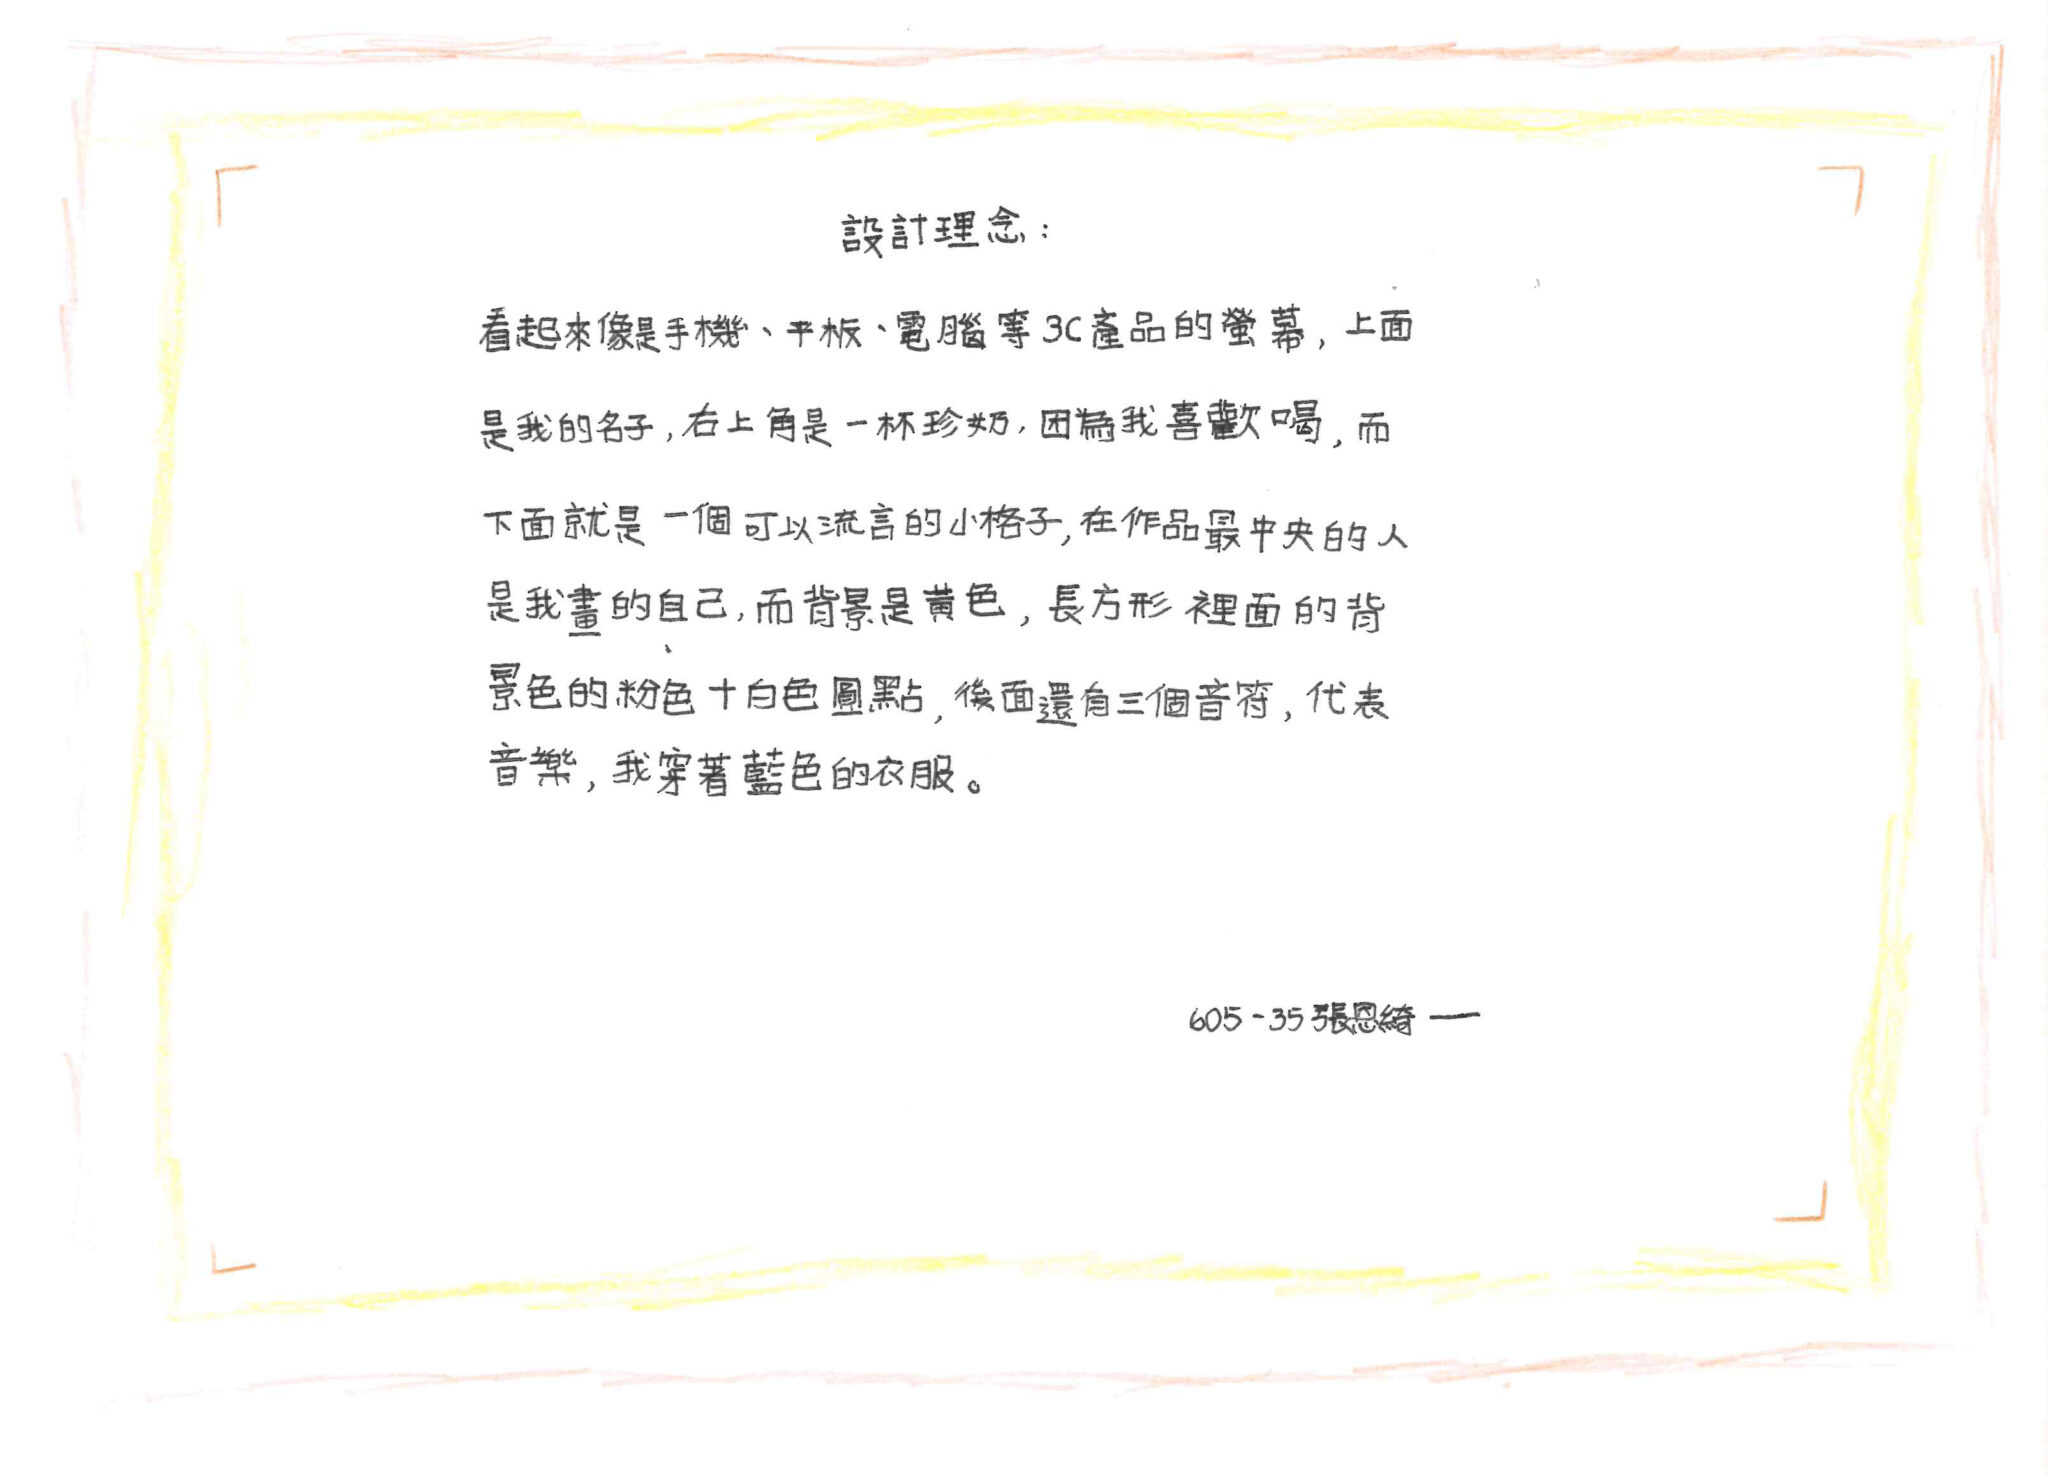 設計理念:
看起來像是手機、平板、電腦等3C產品的螢幕,上面
是我的名子,右上角是一杯珍奶,因為我喜歡喝,而
下面就是一個可以流言的小格子,在作品最中央的人
是我畫的自己,而背景是黃色,長方形裡面的背
景色的粉色十白色圓點,後面還有三個音符,代表
音樂,我穿著藍色的衣服。
605-35張恩綺—